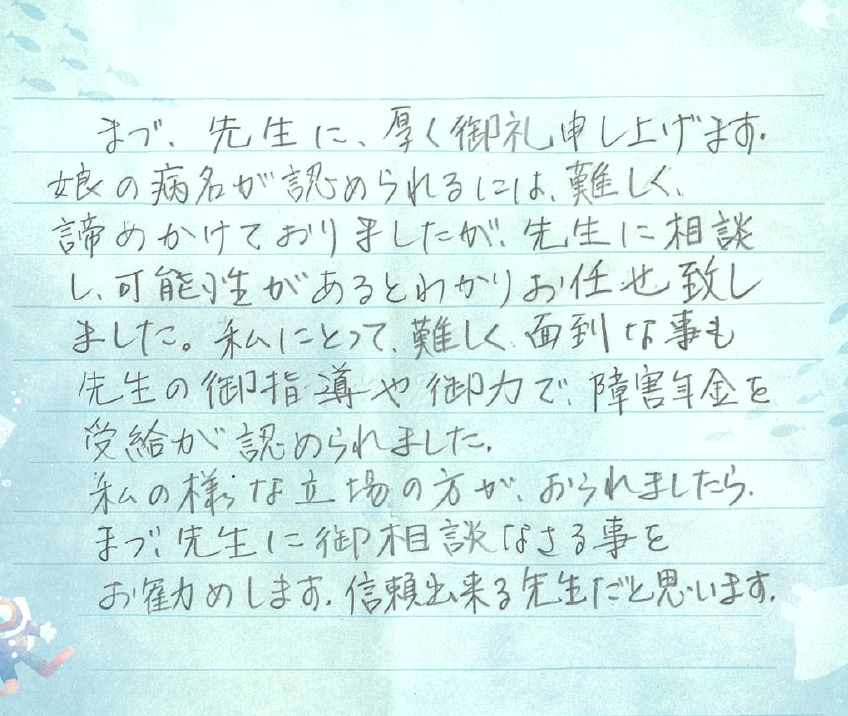 まづ、先生に、厚く御礼申し上げます.
娘の病名が認められるには、難しく、
諦めかけておりましたが、先生に相談
し、可能性があるとわかりお任せ致し
ました。私にとって、難しく、面到な事も
先生の御指導や御力で、障害年金を
受給が認められました.
私の様な立場の方が、おられましたら、
まづ、先生に御相談なさる事を
お勧めします.信頼出来る先生だと思います.